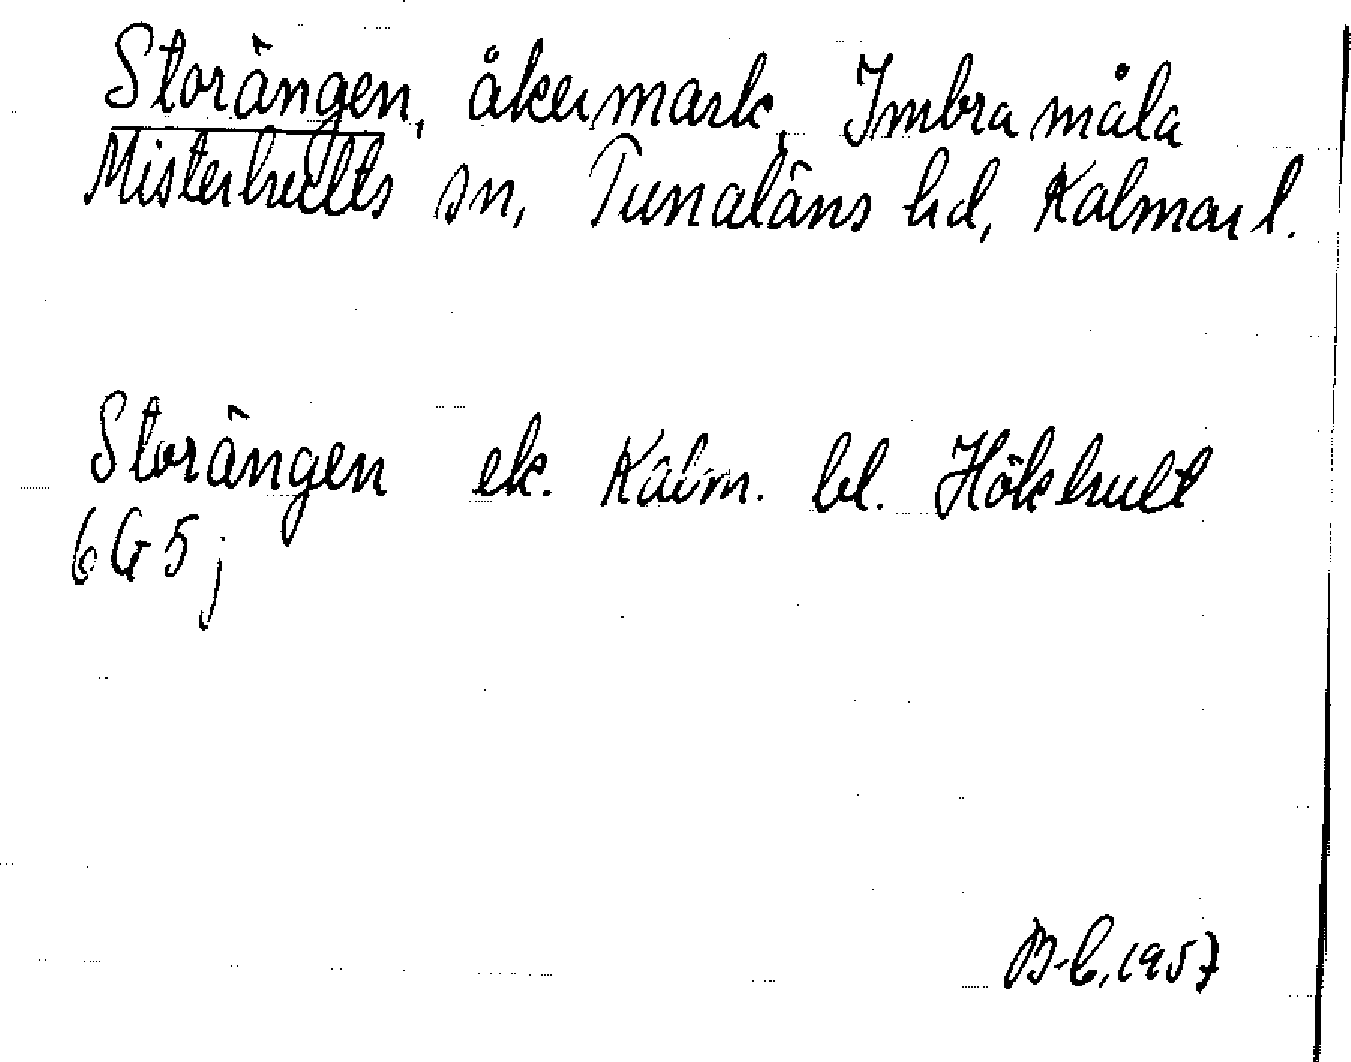 Storängen, åkermark, Imbramåla
Misterhults sn, Tunaläns hd, Kalmar l.
Storängen ek. Kalm. bl. Hökhult
6G5j
B-b, 1957